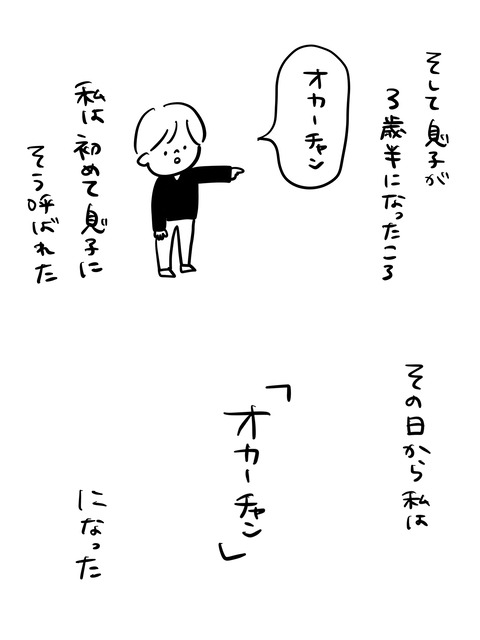 そして息子が
3歳半になったころ
オカーチャン
私は初めて息子に
そう呼ばれた
その日から私は
「オカーチャン」
になった